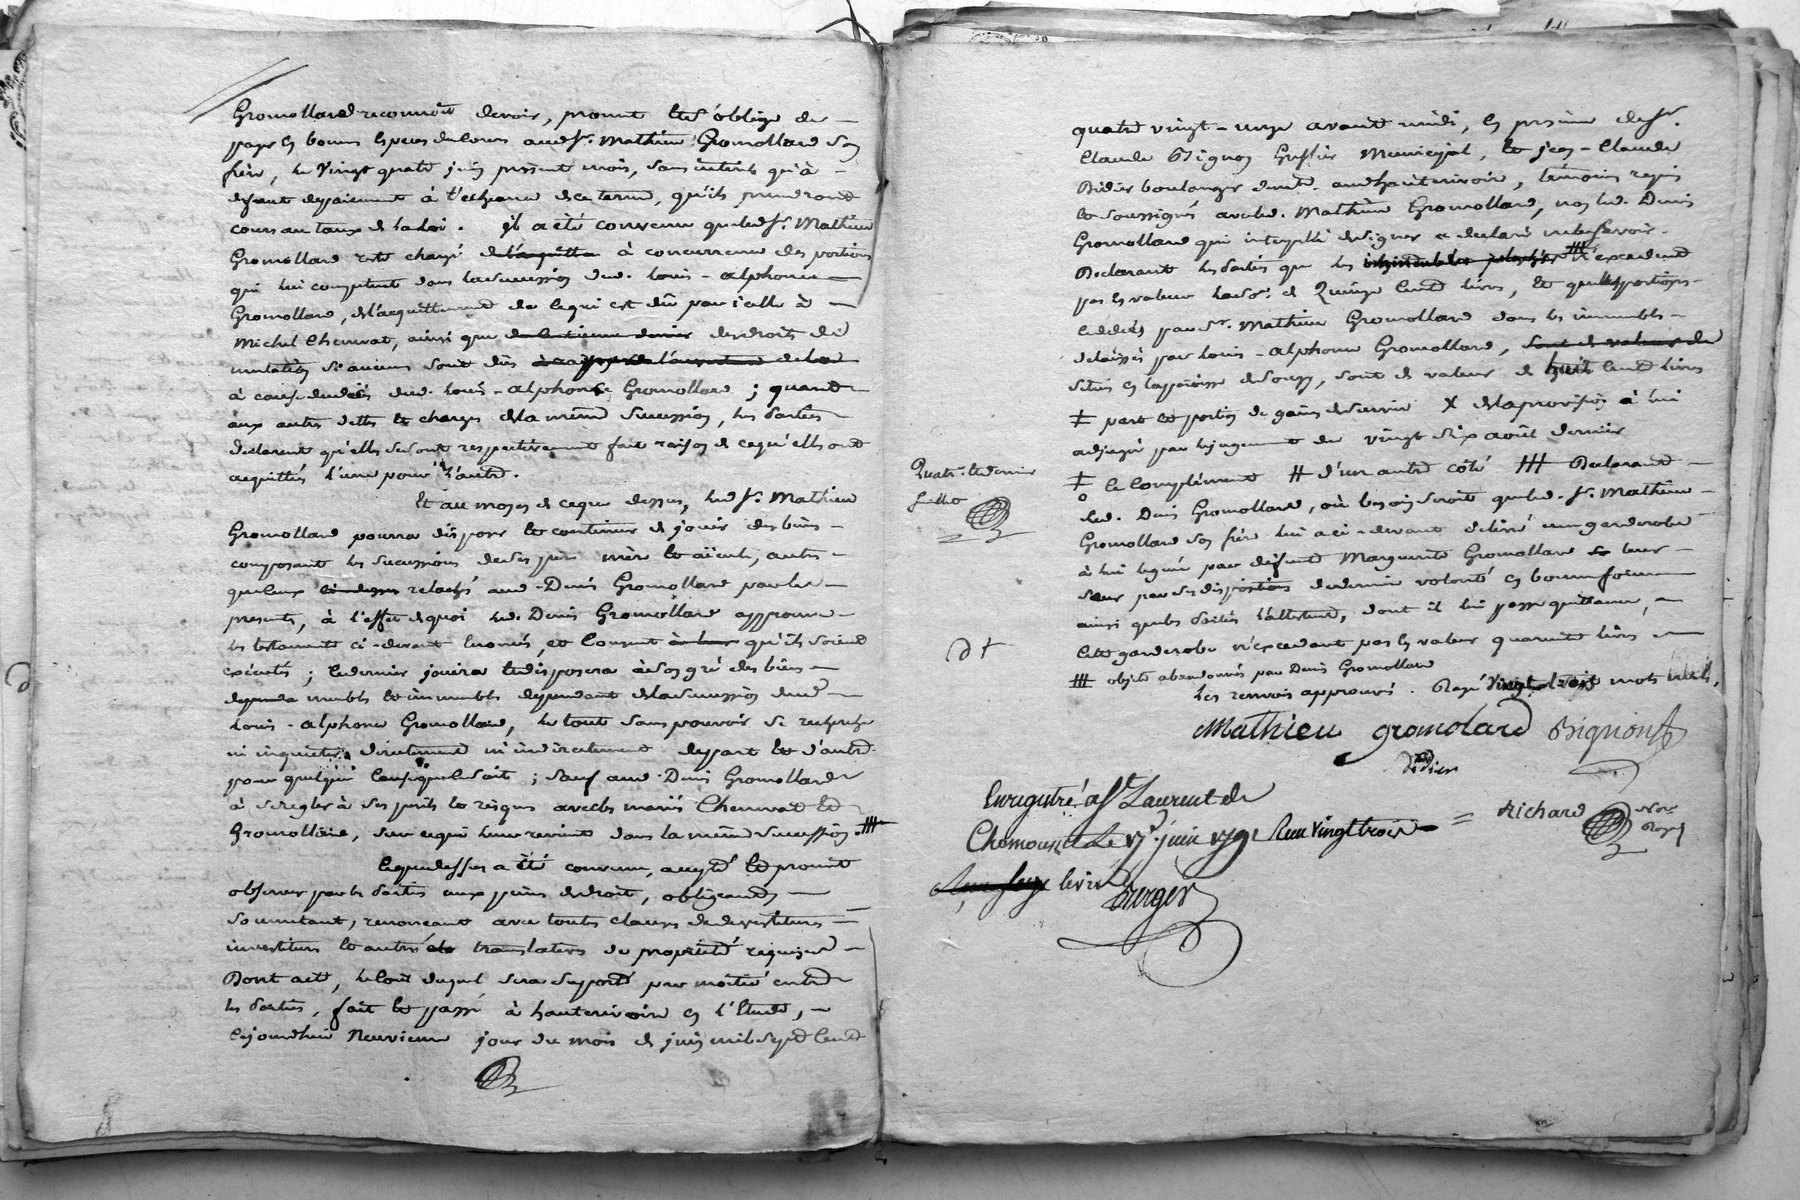 Gromollard reconnoit devoir, promet et s'oblige de
payer en bonnes especes du cours aud. Sr. Mathieu Gromollard son
frère, le vingt quatre juin present mois, sans interets qu'à
defaut de paiement à l'echeance de ce terme, qu'ils prendront
cours au taux de la loi. il a été convenu que led. Sr. Mathieu
Gromollard reste chargé de l'acquitter à concurrence des portions
qui lui competent dans la succession dud. Louis-alphonse
Gromollard, de l'acquittement de ce qui est dû par icelle à
Michel Chermat, ainsi que des droits de
mutation si aucuns sont dus
à cause du décès dud. Louis-alphonse Gromollard; quant
aux autres dettes et charges de la même succession, les parties
declarent qu'elles se sont respectivement fait raison de ce qu'elles ont
acquittés l'une pour l'autre.
Et au moyen de ce que dessus, led. Sr. Mathieu
Gromollard pourra disposer et continuer de jouir des biens
composant les successions de ses père mère et aïeule, autres
que ceux ci-dessus relachés aud. Denis Gromollard par les
presentes, à l'effet de quoi led. Denis Gromollard approuve
les testaments ci-devant enoncés, et consent qu'ils soient
executés; ce dernier jouira et disposera à son gré des biens
meubles et immeubles dependant de la succession dud.
Louis-alphonse Gromollard, le tout sans pouvoir se rechercher
ni inquieter directement ni indirectement de part et d'autre
pour quelque cause que ce soit; sauf aud. Denis Gromollard
à se regler à ses perils et risques avec les mariés Chermat et
Gromollard, sur ce qui leur revient dans la même succession. ####
Ce que dessus a été convenu, accepté et promis
observer par les parties aux peines de droit, obligeants
soumettant, renonceant avec toutes clauses de devestitures
investitures et autres translatives de propriété requises
Dont acte, le coût duquel sera supporté par moitié entre
les parties, fait et passé à hauterivoire en l'Etude,
cejourdhui Neuvieme jour du mois de juin mil sept cent
quatre vingt-onze avant midi, en presence de Sr.
Claude Bignon Greffier Municipal, et jean-Claude
Didier boulanger demt. aud. hauterivoire, temoins requis
et soussignés avec led. Mathieu Gromollard, non led. Denis
Gromollard qui interpellé de signer a declaré ne le savoir.
Declarant les parties que les ### n'excedent
pas en valeur la so. de Quinze cent livres, et que les portions
cedées par Sr. Mathieu Gromollard dans les immeubles
delaissés par Louis-alphonse Gromollard,
situés en la paroisse de Souzy, sont de valeur de huit cent livres
‡ part et portion de gains de survie X de la provision à lui
adjugée par le jugement du vingt six août dernier
‡ le complément # d'un autre côté ### Declarant
led. Denis Gromollard, où besoin seroit que led. Sr. Mathieu
Gromollard son frère lui a ci-devant delivré une garderobe
à lui leguée par defunte Marguerite Gromollard leur
sœur par ses dispositions de derniere volonté en bonne forme
ainsi que les parties l'attestent, dont il lui passe quittance,
cette garderobe n'excedant pas en valeur quarante livres
#### objets abandonnés par Denis Gromollard
Les renvois approuvés. Rayé vingt trois mots nuls.
Quatre. et dernier
feuillet
Mathieu gromolard Bignon
Didier
Richard Nore
Royal
Enregistré à St Laurent de
Chamousset Le 17 juin 1791 Reçu vingt trois
livres
Berger